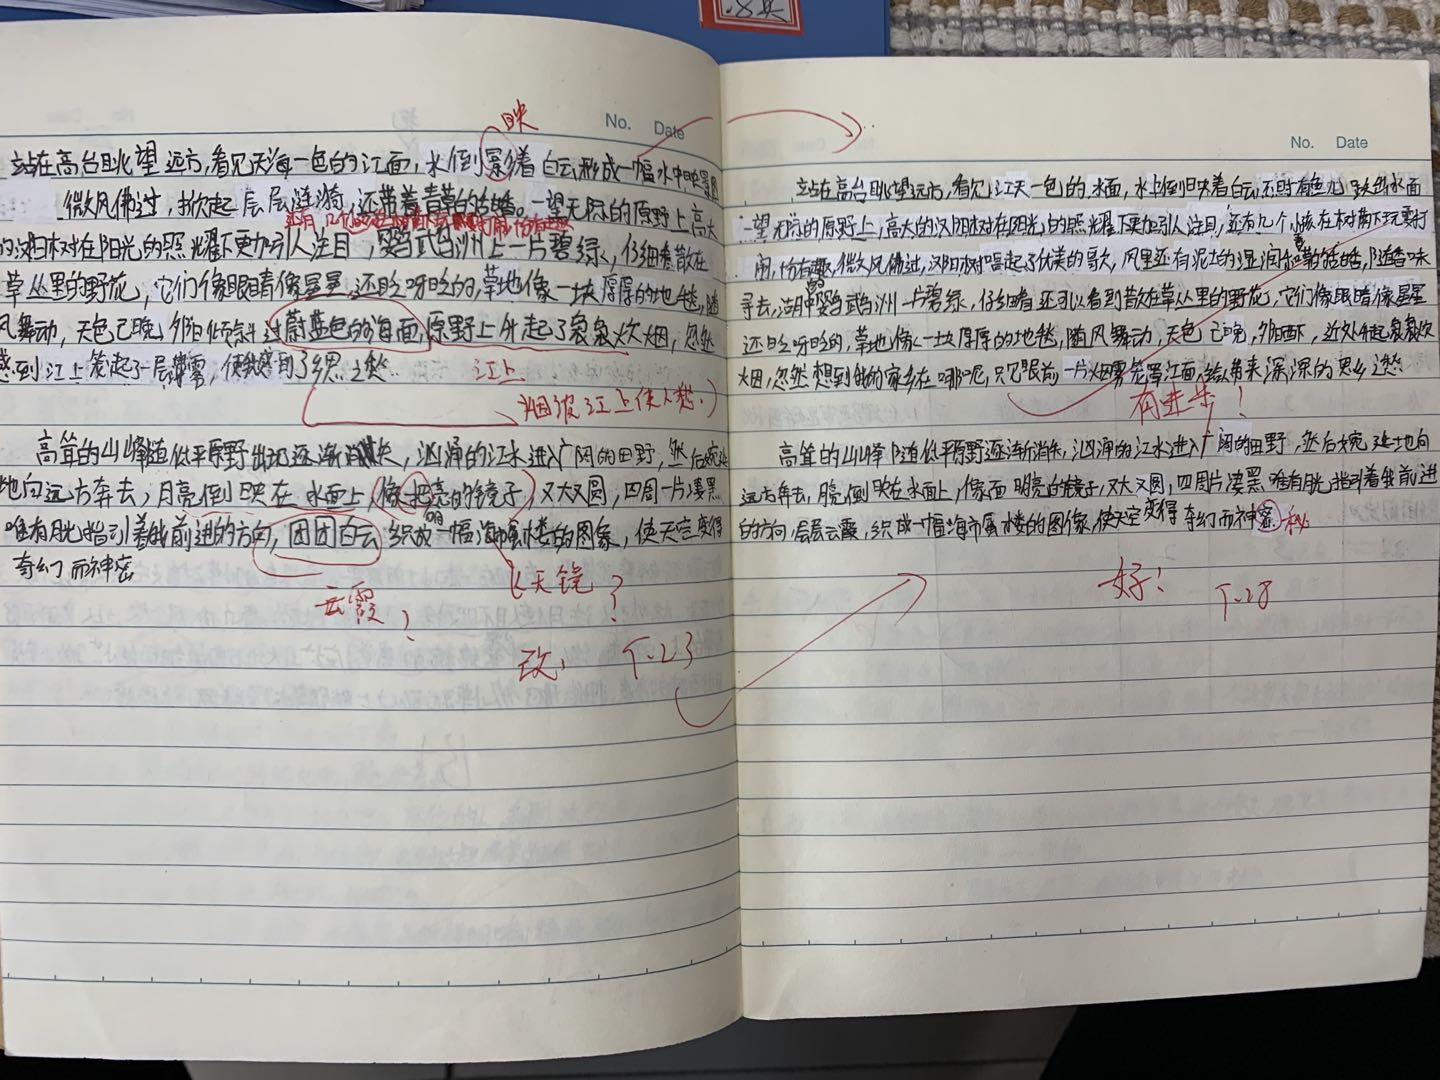 映
No. Date
站在高台眺望远方,看见天海一色的江面,水倒影着白云,形成一幅水中映景图
微风佛过,掀起层层涟漪,还带着青草的咕噜。一望无际的原野上高大
还有几个
的汉阳树在阳光的照耀下更加引人注目,鹦鹉洲上一片碧绿,仔细看散在
草丛里的野花,它们像眼睛像星星,还眨呀眨的,草地像一块厚厚的地毯,随
风舞动,天色已晚,夕阳倾斜过蔚蓝色的海面,原野上升起了袅袅炊烟,忽然
感到江上笼起了一层薄雾,使我感到了思乡之愁
江上
烟波江上使人愁。)
高耸的山峰随低平原野出现逐渐消失,汹涌的江水进入广阔的田野,然后蜿蜒
地向远方奔去,月亮倒映在水面上,像把亮的镜子,又大又圆,四周一片凄黑
唯有月光指引着我前进的方向,团团白云织成一幅海市蜃楼的图像,使天空变得
奇幻而神密
云霞?
飞天镜?
改,
7.23
No. Date
站在高台眺望远方,看见江天一色的水面,水上倒映着白云,不时有鱼儿跃出水面
一望无际的原野上,高大的汉阳树在阳光的照耀下更加引人注目,还有几个小孩在树荫下玩耍打
闹,微风佛过,汉阳树唱起了优美的歌,风里还有泥土的湿润和青草的咕噜,随着味
寻去,湖中鹦鹉洲一片碧绿,仔细看还可以看到散在草丛里的野花,它们像眼睛像星星
还眨呀眨的,草地像一块厚厚的地毯,随风舞动,天色已晚,夕阳西下,近处升起袅袅炊
烟,忽然想到我的家乡在哪呢,只见眼前一片烟雾笼罩江面,给人带来深深的思乡之愁
有进步!
高耸的山峰随低平原野逐渐消失,汹涌的江水进入广阔的田野,然后蜿蜒地向
远方奔去,月亮倒映在水面上,像一面明亮的镜子,又大又圆,四周一片凄黑,唯有月光指引着我前进
的方向,层层云霞,织成一幅海市蜃楼的图像,使天空变得奇幻而神密
秘
好!
7.28